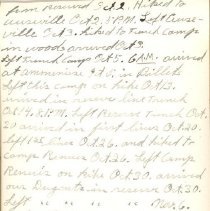 from           Oct 2. Hiked to
          Oct 2. 5 P.M. Left
ville Oct 3. hiked to Trench Camp
in woods arrived Oct 3.
Left Trench Camp Oct 5. 6 A.M. arrived
at                in Billets
Left this camp on hike Oct 13.
arrived in reserve line trench
Oct 14. 8 P.M. Left Reserve Trench Oct.
20 arrived in first lines Oct 20.
left 1st lines Oct 26. and hiked to
camp          Oct 26. Left Camp
          on hike Oct 30. arrived
our Dugouts in reserve Oct 30.
Left " " " Nov 6.